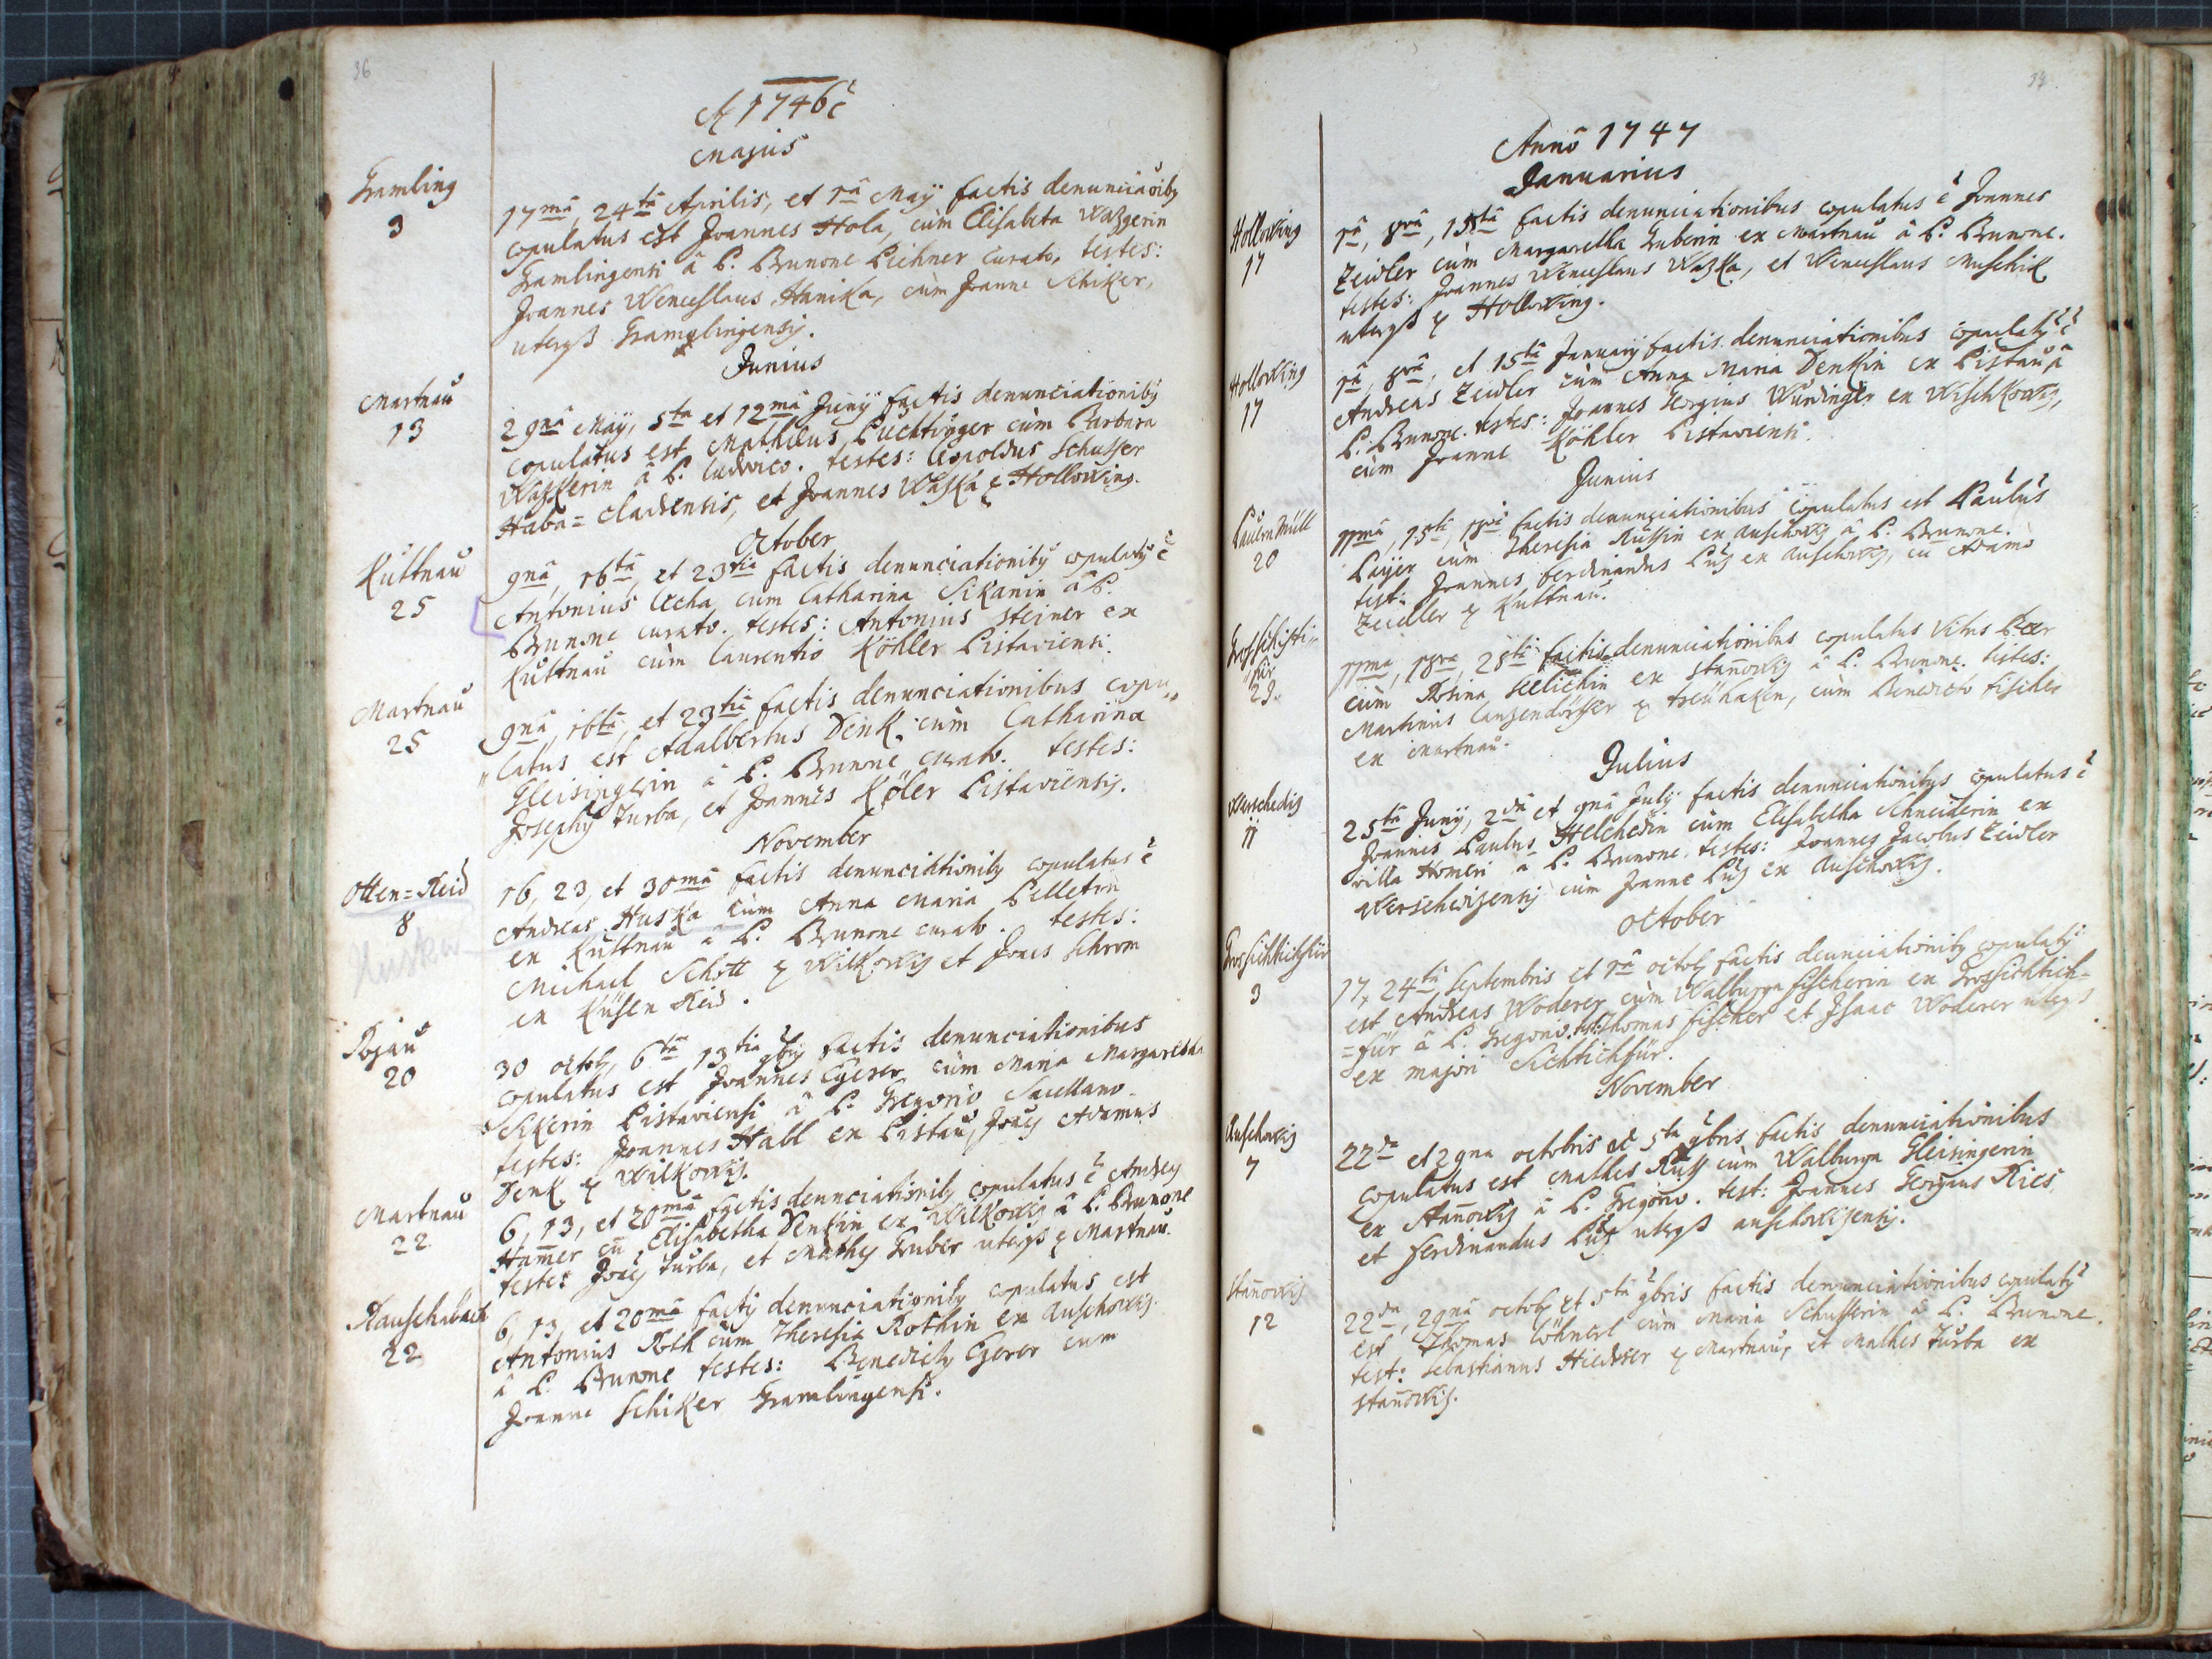 36
A 1746
Majus
Gramling
3
17ma, 24ta Aprilis, et 1a Maÿ factis denunciaoiby
copulatus est Joannes Hola, cùm Elisabeta
Gramlingensi â P. Brunone Pichner Curato, testes:
Joannes Wenceslaus Hanika, cùm Joanne Schiker,
Gramplingensis.
Junius
Martnau
13
29na Maÿ, 5ta et 12ma Junÿ factis denunciationiby
copulatus est Mathæus Puchtinger cùm Barbara
Wazkerin â P. Ludovico. testes: Leopoldus Schusser
Haba= cladensis, et Joannes Wazka Hollowing.
October
Kuttnau
25
9na, 16ta, et 23tia factis denunciationiby copulaty ẽ
Antonius Ucha cum Catharina Sikanin â P.
Brunone curato. testes: Antonius Steiner ex
Kuttnau cùm Laurentio Köhler Pistaviensi.
Martnau
25
9na, 16ta, et 23tia factis denunciationibus copu„
„latus est Adalbertus Denk cùm Catharina
Gleisingerin â P. Brunone curato. testes:
Josephy Turba, et Joannes Köler Pistaviensis.
November
Otten=Reid
8
Huska
16, 23, et 30ma factis denunciationiby copulatus ẽ
Andreas Huska cùm Anna Maria Pelletin
ex Kuttnau â P. Brunone curato. testes:
Michael Schott Wilkowig et Joaes Schrom
ex Küsen Reid.
Pojau
20
30 octob, 6ta 13tia 9bris factis denunciationibus
copulatus est Joannes Egerer cùm Maria Margaretha
Sikerin Pistaviensi â P. Gregorio Sacellano
testes: Joannes Habl ex Pistau, Adamus
Denk Wilkowig.
Martnau
22
6, 13, et 20ma factis denunciationiby copulatus ẽ Andrey
Hamer cu Elisabetha Denkin ex Wilkowig â P. Brunone
testes Turba, et Mathey Gruber Martnau.
Rauschnbach
22
6, 13, et 20ma factis denunciationiby copulatus est
Antonius Roth cùm Theresia Rothin ex Auschowig
â P. Brunone testes: Benedicty Egerer cum
Joanne Schiker Gramlingensi.
Anno 1747
Januarius
Hollowing
17
1a, 8va, 15ta factis denunciationibus copulatus ẽ Joannes
Zeidler cùm Margaretha Gruberin ex Martnau â P. Brunone.
testes: Joannes Wenceslaus Wazka, et Wenceslaus Muschik
Hollowing.
Hollowing
17
1a, 8va, et 15ta Januarÿ factis denunciationibus copulaty ẽ
Andreas Zeidler cùm Anna Maria Denkin ex Pistau â
P. Brunone. testes: Joannes Georgius Würdinger ex Wischkowig,
cùm Joanne Köhler Pistaviensi.
Junius
Pauirn Müll
20
11ma, 15ta, 18va factis denunciationibus copulatus est Paulus
Payer cùm Theresia Russin ex Auschowig â P. Brunone.
test: Joannes Ferdinandus Puz ex Auschowig, cu Adamo
Zeidler Kuttnau.
Grossichti„
„für
29.
11ma, 18va, 25ta factis denunciationibus copulatus Vitus Beer
cùm Rosina Seelichin ex Stanowig â P. Brunone. testes:
Martinus Langendörffer Treühaken, cùm Benedicto Fischer
ex Martnau.
Julius
Werschedig
11
25ta Junÿ, 2da et 9na Julÿ factis denunciationibus copulatus ẽ
Joannes Paulus Helchedin cùm Elisabetha Schneiderin ex
villa Homeri â P. Brunone. testes: Joannes Jacobus Zeidler
Werschedizensis cùm Joanne Puz ex Auschowig.
October
Grossichtichfür
3
17, 24ta Septembris et 1a octob factis denunciationiby copulaty
est Andreas Woderer cùm Walburga Fischerin ex Grossichtich=
=für â P. Gregorio. test: Thomas Fischer et Isaac Woderer
ex majori Sichtichfür.
November
Auschowig
7
22da et 29na octobris et 5ta 9bris factis denunciationibus
copulatus est Mathes Russ cùm Walburga Gleisingerin
ex Stanowig â P. Gregorio. test: Joannes Georgius Ries
et Ferdinandus Puz auschowizensis.
Stanowig
12
22da, 29na octob et 5ta 9bris factis denunciationibus copulaty
est Thomas Löhnerl cùm Maria Schusserin â P. Brunone.
test: Sebastianus Hiedtser Martnau, et Mathes Turba ex
Stanowig.